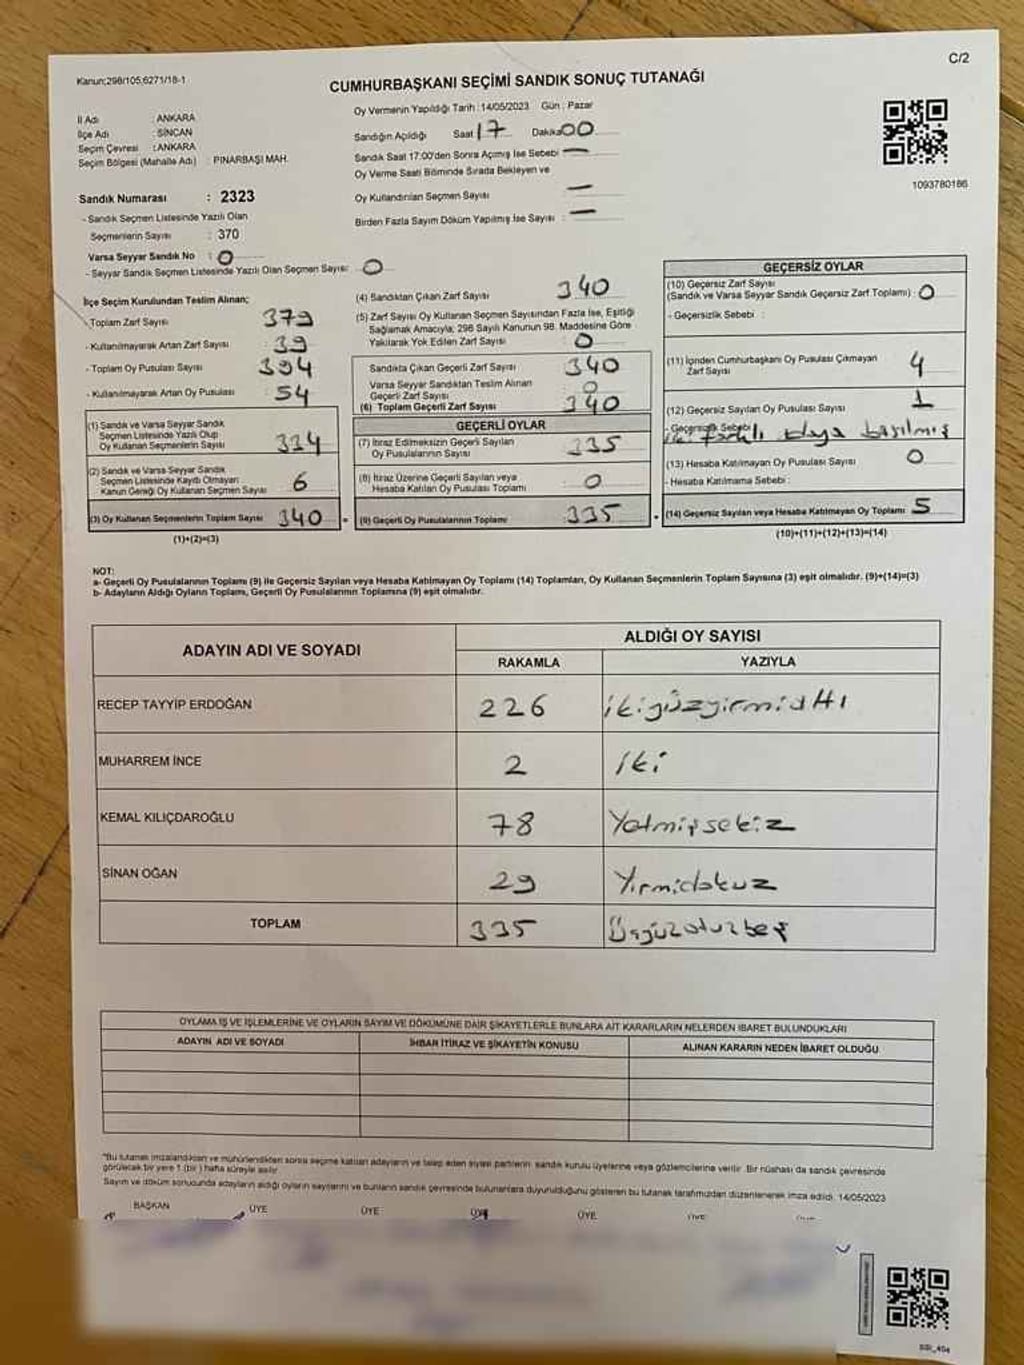 C/2
Kanun;298/105,6271/18-1
CUMHURBAŞKANI SEÇİMİ SANDIK SONUÇ TUTANAĞI
İl Adı : ANKARA
İlçe Adı : SİNCAN
Seçim Çevresi : ANKARA
Seçim Bölgesi (Mahalle Adı) : PINARBAŞI MAH.
Sandık Numarası : 2323
- Sandık Seçmen Listesinde Yazılı Olan
Seçmenlerin Sayısı : 370
Varsa Seyyar Sandık No : 0
- Seyyar Sandık Seçmen Listesinde Yazılı Olan Seçmen Sayısı: 0
Oy Vermenin Yapıldığı Tarih : 14/05/2023 Gün : Pazar
Sandığın Açıldığı Saat 17 Dakika 00
Sandık Saat 17:00'den Sonra Açımış İse Sebebi —
Oy Verme Saati Bitiminde Sırada Bekleyen ve
Oy Kullandırılan Seçmen Sayısı —
Birden Fazla Sayım Döküm Yapılmış İse Sayısı : —
1093780186
İlçe Seçim Kurulundan Teslim Alınan;
- Toplam Zarf Sayısı 379
- Kullanılmayarak Artan Zarf Sayısı : 39
- Toplam Oy Pusulası Sayısı 394
- Kullanılmayarak Artan Oy Pusulası : 54
(1) Sandık ve Varsa Seyyar Sandık
Seçmen Listesinde Yazılı Olup
Oy Kullanan Seçmenlerin Sayısı 334
(2) Sandık ve Varsa Seyyar Sandık
Seçmen Listesinde Kayıtlı Olmayan
Kanun Gereği Oy Kullanan Seçmen Sayısı 6
(3) Oy Kullanan Seçmenlerin Toplam Sayısı 340
(1)+(2)=(3)
(4) Sandıktan Çıkan Zarf Sayısı 340
(5) Zarf Sayısı Oy Kullanan Seçmen Sayısından Fazla İse, Eşitliği
Sağlamak Amacıyla; 298 Sayılı Kanunun 98. Maddesine Göre
Yakılarak Yok Edilen Zarf Sayısı : 0
Sandıkta Çıkan Geçerli Zarf Sayısı 340
Varsa Seyyar Sandıktan Teslim Alınan
Geçerli Zarf Sayısı 0
(6) Toplam Geçerli Zarf Sayısı 340
GEÇERLİ OYLAR
(7) İtiraz Edilmeksizin Geçerli Sayılan
Oy Pusulalarının Sayısı 335
(8) İtiraz Üzerine Geçerli Sayılan veya
Hesaba Katılan Oy Pusulası Toplamı 0
(9) Geçerli Oy Pusulalarının Toplamı 335
GEÇERSİZ OYLAR
(10) Geçersiz Zarf Sayısı
(Sandık ve Varsa Seyyar Sandık Geçersiz Zarf Toplamı) : 0
- Geçersizlik Sebebi :
(11) İçinden Cumhurbaşkanı Oy Pusulası Çıkmayan
Zarf Sayısı 4
(12) Geçersiz Sayılan Oy Pusulası Sayısı 1
- Geçersizlik Sebebi
iki farklı basılmış
(13) Hesaba Katılmayan Oy Pusulası Sayısı 0
- Hesaba Katılmama Sebebi :
(14) Geçersiz Sayılan veya Hesaba Katılmayan Oy Toplamı 5
(10)+(11)+(12)+(13)=(14)
NOT:
a- Geçerli Oy Pusulalarının Toplamı (9) ile Geçersiz Sayılan veya Hesaba Katılmayan Oy Toplamı (14) Toplamları, Oy Kullanan Seçmenlerin Toplam Sayısına (3) eşit olmalıdır. (9)+(14)=(3)
b- Adayların Aldığı Oyların Toplamı, Geçerli Oy Pusulalarının Toplamına (9) eşit olmalıdır.
ADAYIN ADI VE SOYADI ALDIĞI OY SAYISI
RAKAMLA YAZIYLA
RECEP TAYYİP ERDOĞAN 226 ikiyüzyirmialtı
MUHARREM İNCE 2 iki
KEMAL KILIÇDAROĞLU 78 Yetmişsekiz
SİNAN OĞAN 29 Yirmidokuz
TOPLAM 335 Üçyüzotuzbeş
OYLAMA İŞ VE İŞLEMLERİNE VE OYLARIN SAYIM VE DÖKÜMÜNE DAİR ŞİKAYETLERLE BUNLARA AİT KARARLARIN NELERDEN İBARET BULUNDUKLARI
ADAYIN ADI VE SOYADI İHBAR İTİRAZ VE ŞİKAYETİN KONUSU ALINAN KARARIN NEDEN İBARET OLDUĞU
"Bu tutanak imzalandıktan ve mühürlendikten sonra seçime katılan adayların ve talep eden siyasi partilerin sandık kurulu üyelerine veya gözlemcilerine verilir. Bir nüshası da sandık çevresinde
görülecek bir yere 1 (bir) hafta süreyle asılır.
Sayım ve döküm sonucunda adayların aldığı oyların sayılarını ve bunların sandık çevresinde bulunanlara duyurulduğunu gösteren bu tutanak tarafımızdan düzenlenerek imza edildi. 14/05/2023
BAŞKAN ÜYE ÜYE ÜYE ÜYE